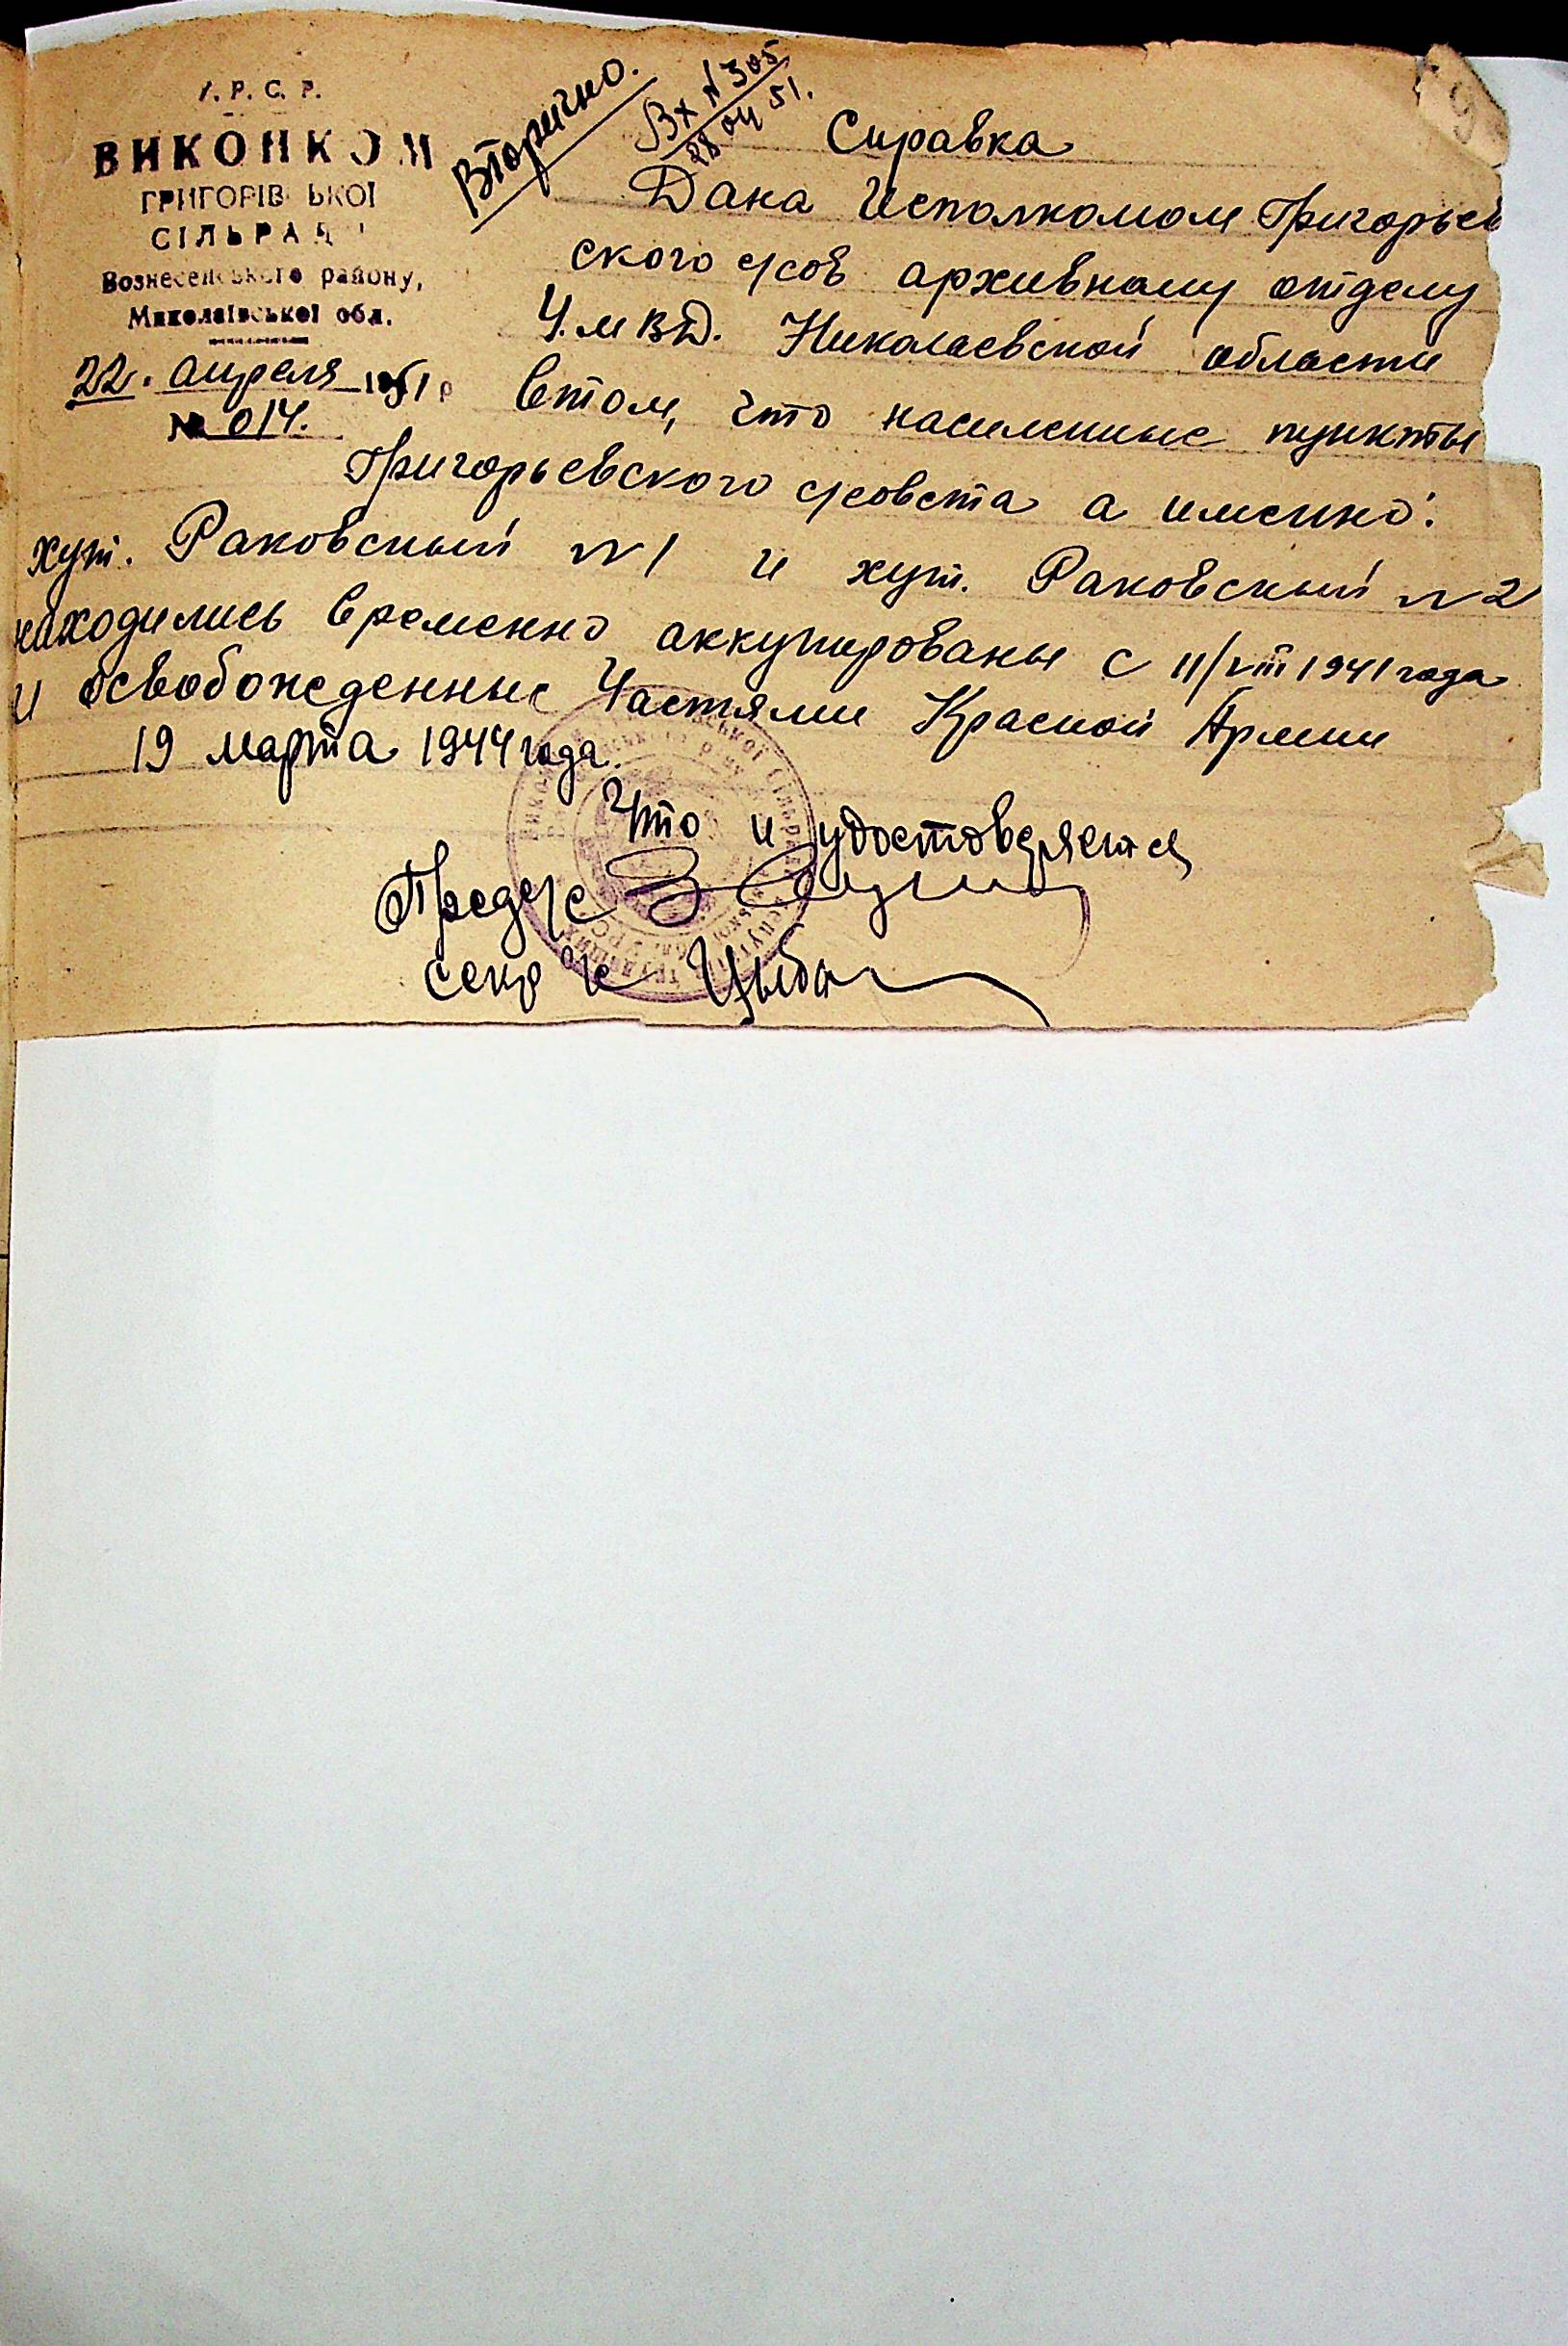 У.Р.С.Р.
ВИКОНКОМ
ГРИГОРІВСЬКОЇ
СІЛЬРАДИ
Вознесенського району,
Миколаївської обл.
22. апреля 1951 р
№ 014.
Вторично.
Вх N 305
28 04 51.
9
Справка
Дана Исполкомом Григорьев
ского с/сов архивному отделу
У.МВД. Николаевской области
втом, что населенные пункты
Григорьевского с/совета а именно:
хут. Раковский N 1 и хут. Раковский N 2
находились временно аккупированы с 11/VIII 1941 года
и освобожденные Частями Красной Армии
19 марта 1944 года.
Что и удостоверяется
Предс/с
секр